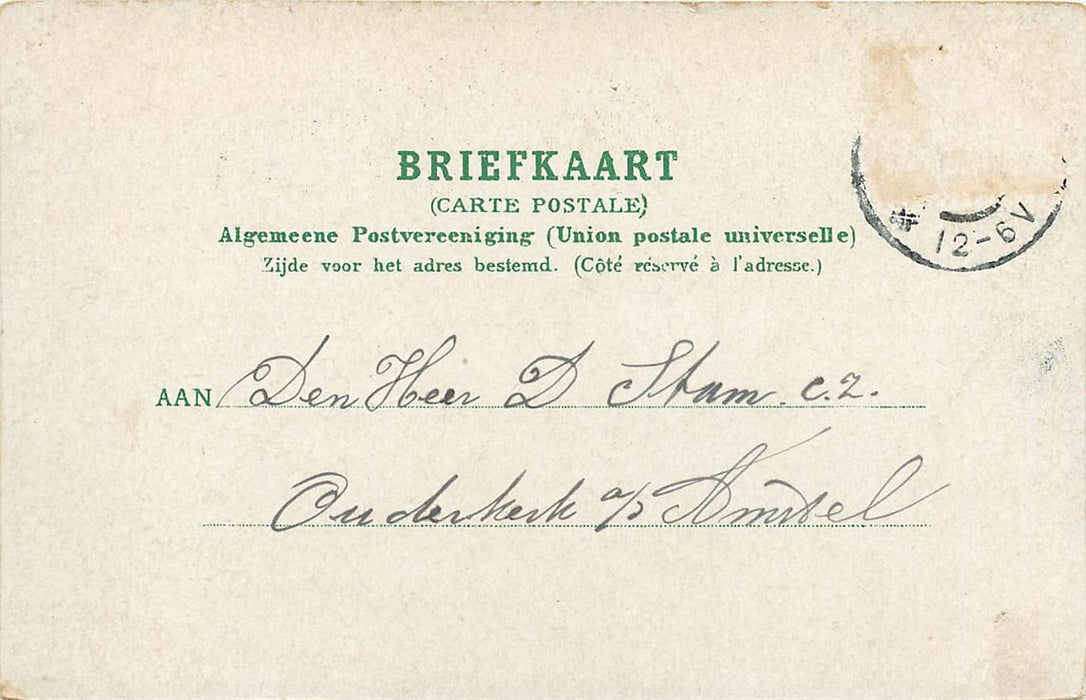 BRIEFKAART
(CARTE POSTALE)
Algemeene Postvereeniging (Union postale universelle)
Zijde voor het adres bestemd. (Côté réservé à l'adresse.)
12-6V
AAN Den Heer D Stam. c.z.
Ouderkerk a/d Amstel